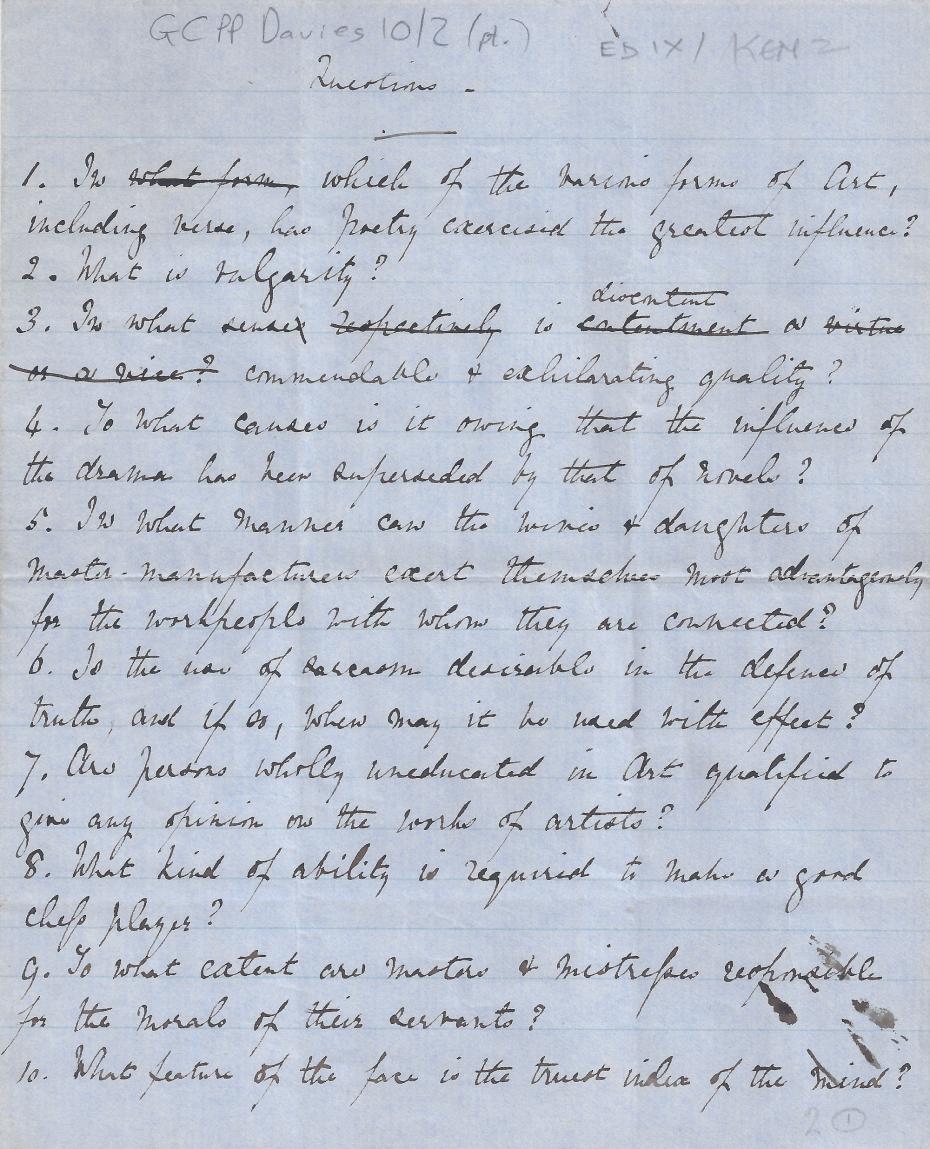 GCPP Davies 10/2 (pt.)
ED IX/ KEN 2
Questions -
1. In what form, which of the various forms of Art,
including verse, has Poetry exercised the greatest influence?
2. What is vulgarity?
discontent
3. In what senses respectively is contentment a virtue
or a vice? commendable & exhilarating quality?
4. To what causes is it owing that the influence of
the drama has been superseded by that of novels?
5. In what manner can the wives & daughters of
master-manufacturers exert themselves most advantageously
for the workpeople with whom they are connected?
6. Is the use of sarcasm desirable in the defence of
truth, and if so, when may it be used with effect?
7. Are persons wholly uneducated in Art qualified to
give any opinion on the works of artists?
8. What kind of ability is required to make a good
chess player?
9. To what extent are masters & mistresses responsible
for the morals of their servants?
10. What feature of the face is the truest index of the mind?
2 1